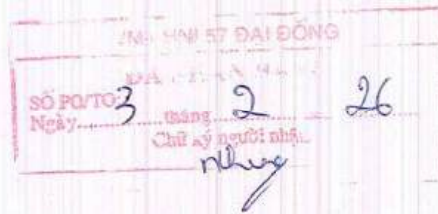 HNI 57 ĐẠI ĐỒNG
SỐ PO/TO
Ngày 3 tháng 2 26
Chữ ký người nhận
Nhung